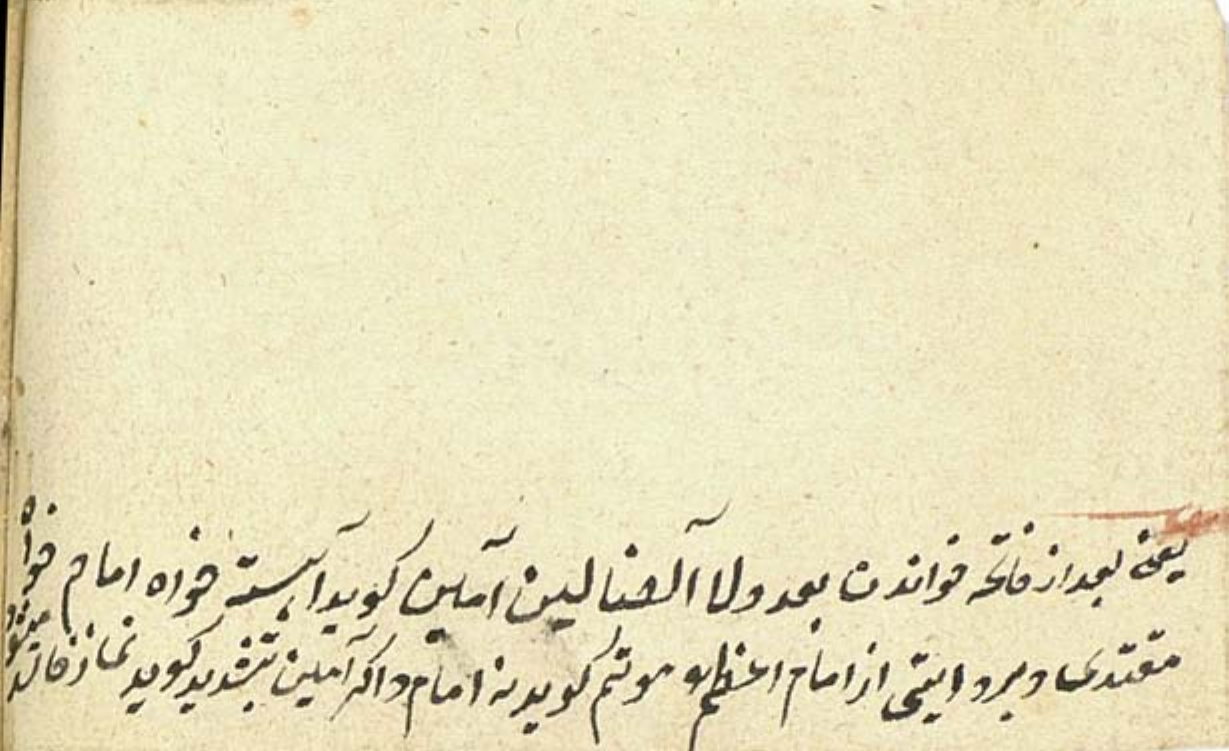 یعنی بعد از فاتحه خواندن بعد ولا آلضالین آمین کوید آهسته خواه امام خواه
مقتدی و بروایتی از امام اعظم موتم کوید نه امام واکر آمین بتشدید کوید نماز فاسد